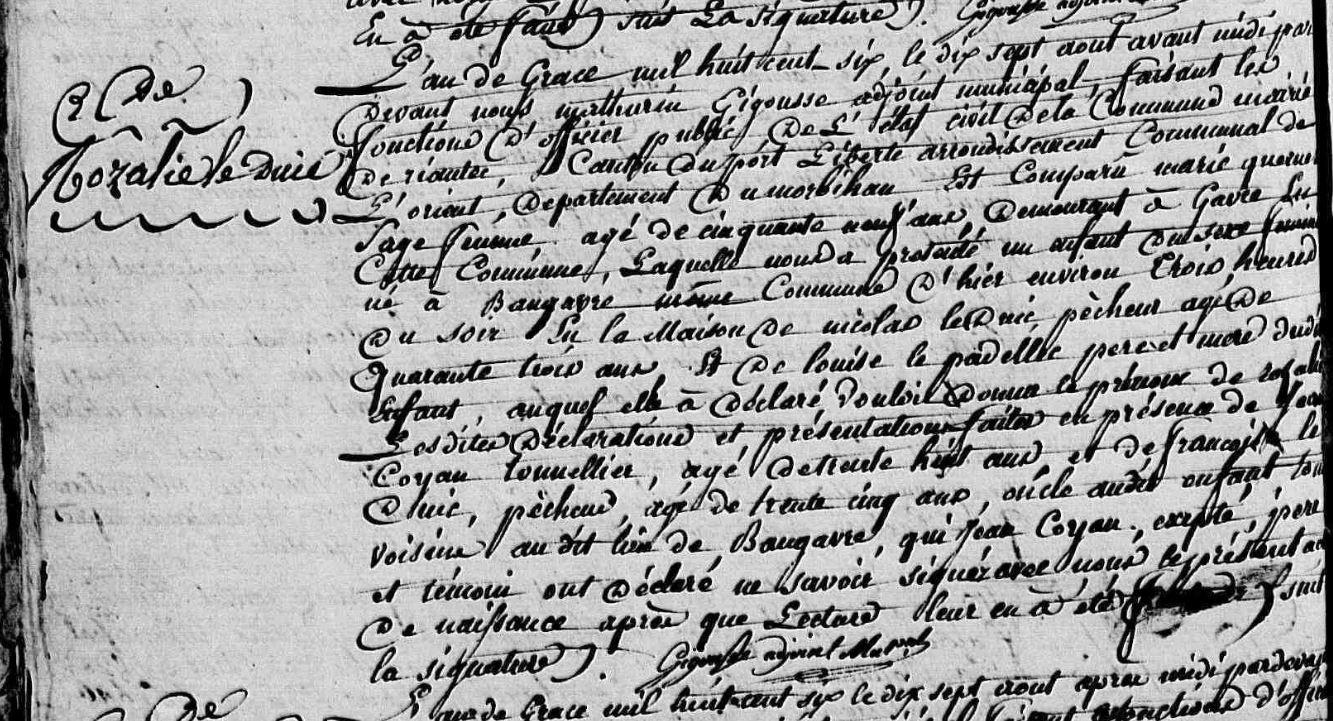 En a été faite) suit La signature). Gigousse adjoint
L'an de Grace mil huit cent six, le dix sept aout avant midi par
devant nous mathurin Gigousse adjoint municipal, faisant les
fonctions d'officier public de L'état civil de la Commune mairie
De riantec, Canton du port Liberté arrondissement Communal de
L'orient, departement du morbihan Est Comparu marie
Sage femme agé de cinquante neuf ans Demeurant à Gavre En
Cette Commune, Laquelle nous a présenté un enfant du sexe feminin
né à Bangavre même Commune d'hier environ trois heures
Du soir En la Maison de nicolas le Duic pêcheur agé de
Quarante trois ans Et De louise le padellec pere et mere dudit
Enfant, auquel elle à déclaré vouloir Donner le prénom de rosalie
Les dites déclarations et présentations faites en présence de
Coyan tonnellier, agé de trente huit ans et de françois le
Duic, pêcheur, agé de trente cinq ans, oncle audit enfant tous
voisins au dit lieu de Bangavre, qui Jean Coyan excepté, pere
et témoin ont Déclaré ne savoir signer avec nous le présent acte
De naissance après que Lecture leur en à été suit
la signature). Gigousse adjoint
L'an de Grace mil huit cent six le dix sept aout après midi pardevant
fonctions d'officier
2 de
Rozalie le Duic
de